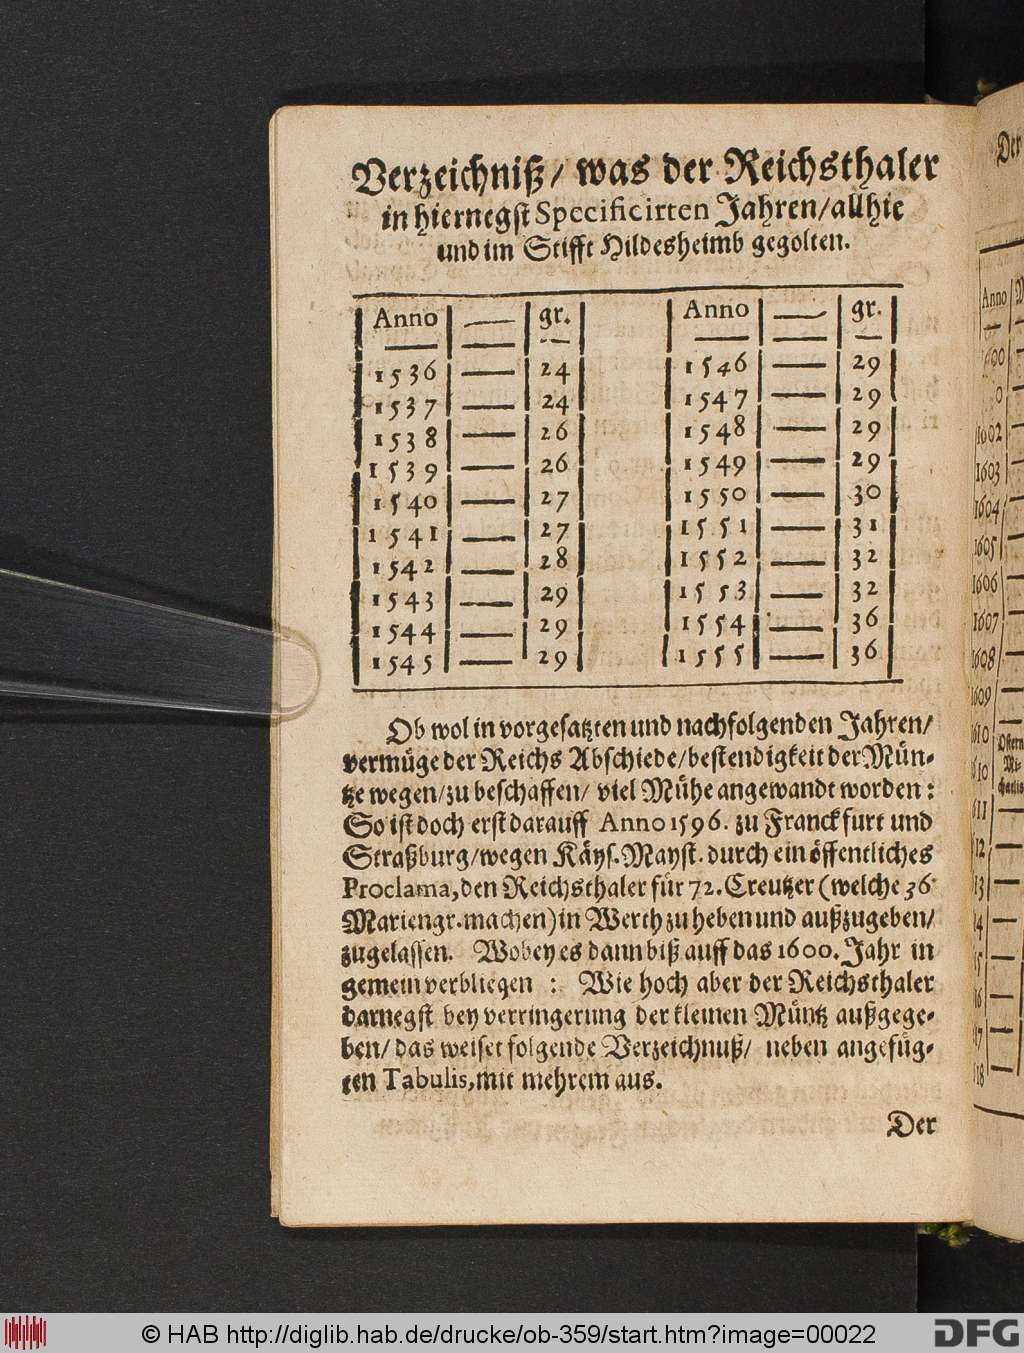 Verzeichniß/ was der Reichsthaler
in hiernegst Specificirten Jahren/allhie
und im Stifft Hildesheimb gegolten.
Anno — gr. Anno — gr.
1536 — 24 1546 — 29
1537 — 24 1547 — 29
1538 — 26 1548 — 29
1539 — 26 1549 — 29
1540 — 27 1550 — 30
1541 — 27 1551 — 31
1542 — 28 1552 — 32
1543 — 29 1553 — 32
1544 — 29 1554 — 36
1545 — 29 1555 — 36
Ob wol in vorgesatzten und nachfolgenden Jahren/
vermüge der Reichs Abschiede/bestendigkeit der Mün-
tze wegen/zu beschaffen/ viel Mühe angewandt worden:
So ist doch erst darauff Anno 1596. zu Franckfurt und
Straßburg/wegen Käys. Mayst. durch ein öffentliches
Proclama, den Reichsthaler für 72. Creutzer (welche 36
Mariengr. machen) in Werth zu heben und außzugeben/
zugelassen. Wobey es dann biß auff das 1600. Jahr in
gemein verbliegen : Wie hoch aber der Reichsthaler
darnegst bey verringerung der kleinen Müntz außgege-
ben/ das weiset folgende Verzeichnuß/ neben angefüg-
ten Tabulis, mit mehrem aus.
Der
Der
Anno
1602
1603
1604
1605
1606
1607
1608
1609
Ostern
Mi-
chaelis
© HAB http://diglib.hab.de/drucke/ob-359/start.htm?image=00022
DFG